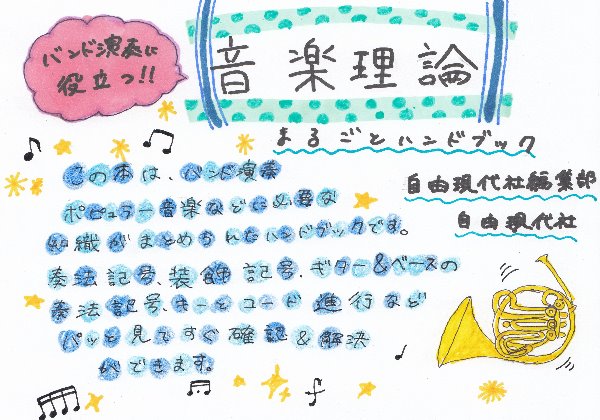 バンド演奏に
役立つ!!
音楽理論
まるごとハンドブック
自由現代社編集部
自由現代社
この本は、バンド演奏
ポピュラー音楽などに必要な
知識がまとめられたハンドブックです。
奏法記号、装飾記号、ギター&ベースの
奏法記号、キーとコード進行など
パッと見てすぐ確認&解決
ができます。